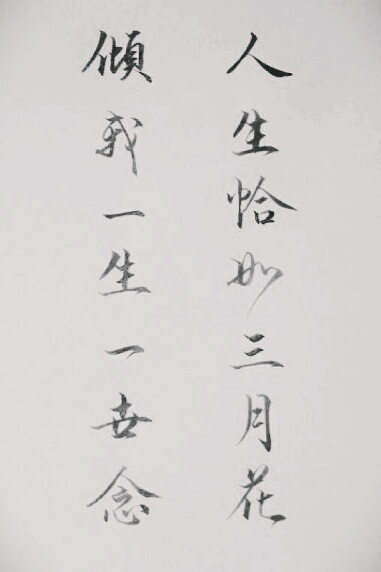 人生恰如三月花
傾我一生一世念